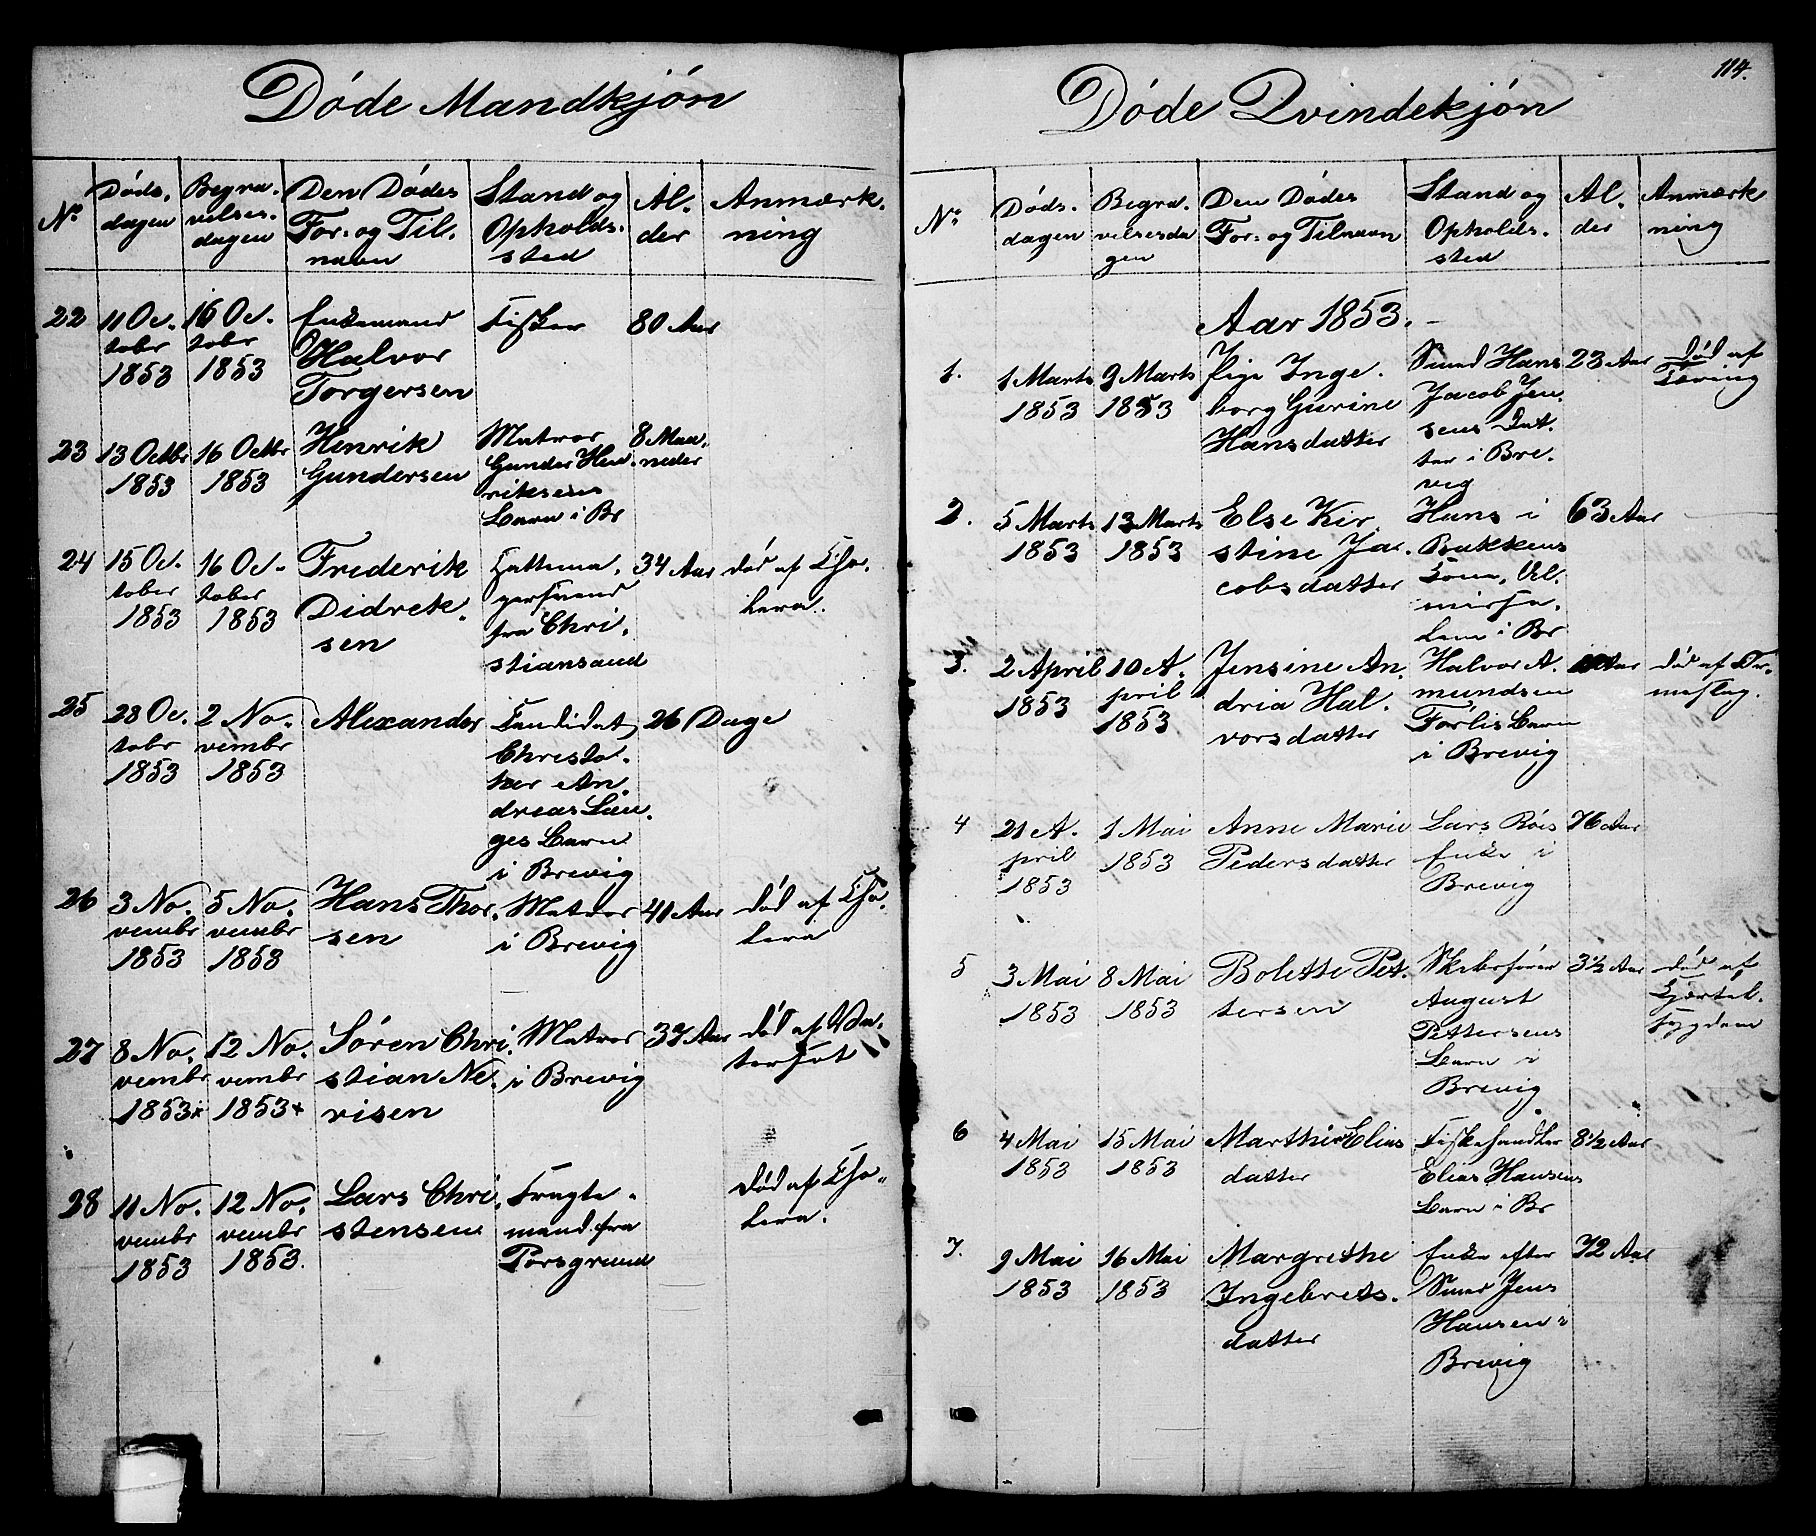 Døde Mandkjøn
No
Døds-
dagen
Begra-
velses-
dagen
Den Dødes
For- og Til-
navn
Stand og
Opholds-
sted
Al-
der
Anmærk-
ning
22
11 Oc-
tobr
1853
16 Oc-
tobr
1853
Enkemand
Halvor
Torgersen
Fisker
80 Aar
23
13 Octbr
1853
16 Octbr
1853
Henrik
Gundersen
Matros
Gunder Hen-
riksens
Barn i Br
8 Maa-
neder
24
15 Oc-
tober
1853
16 Oc-
tober
1853
Frederik
Didrek-
sen
Hattema-
gersvend
fra Chri-
stiansand
34 Aar
død af Cho-
lera.
25
28 Oc-
tobr
1853
2 No-
vembr
1853
Alexander
Candidat
Christo-
An-
dreas Lan-
ges Barn
i Brevig
26 Dage
26
3 No-
vembr
1853
5 No-
vembr
1853
Hans Thor-
sen
Matros
i Brevig
41 Aar
død af Cho-
lera
27
8 No-
vembr
1853
12 No-
vembr
1853
Søren Chri-
stian Ne-
risen
Matros
i Brevig
37 Aar
død af Va-
tersot
28
11 No-
vembr
1853
12 No-
vembr
1853.
Lars Chri-
stensen
Fragte-
mand fra
Porsgrund
Død af Cho-
lera.
114.
Døde Qvindekjøn
No
Døds-
dagen
Begra-
velsesda
gen
Den Dødes
For- og Tilnavn
Stand og
Opholds-
sted
Al-
der
Anmærk
ning
Aar 1853.
1.
1 Marts
1853
9 Marts
1853
Pige Inge-
borg Gurine
Hansdatter
Smed Hans
Jacob Jen-
sens Dat-
ter i Bre-
vig
23 Aar
Død af
Tæring
2.
5 Marts
1853
13 Marts
1853
Else Kir-
stine Ja-
cobsdatter
Hans i
Bakkens
Kone, Al-
misse-
lem i Br
63 Aar
3.
2 April
1853
10 A-
pril
1853
Jensine An-
dria Hal-
vorsdatter
Halvor A-
mundsen
Førlis Barn
i Brevig
Aar
død af
4
21 A-
pril
1853
1 Mai
1853
Anne Marie
Pedersdatter
Lars Røes
Enke i
Brevig
76 Aar
5
3 Mai
1853
8 Mai
1853
Bolette Pet-
tersen
Skibsfører
August
Pettersens
Barn i
Brevig
3½ Aar
død af
Kjertel-
sygdom
6
4 Mai
1853
15 Mai
1853
Marthie Elias
datter
Fiskehandler
Elias Hansens
Barn i Br
8½ Aar
7.
9 Mai
1853
16 Mai
1853
Margrethe
Ingebrets-
datter
Enke efter
Smed Jens
Hansen i
Brevig
72 Aar